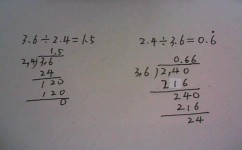 3.6÷2.4=1.5
1.5
2,4)3,6
24
120
120
0
2.4÷3.6=0.6̇
0.66
3,6)2,40
216
240
216
24